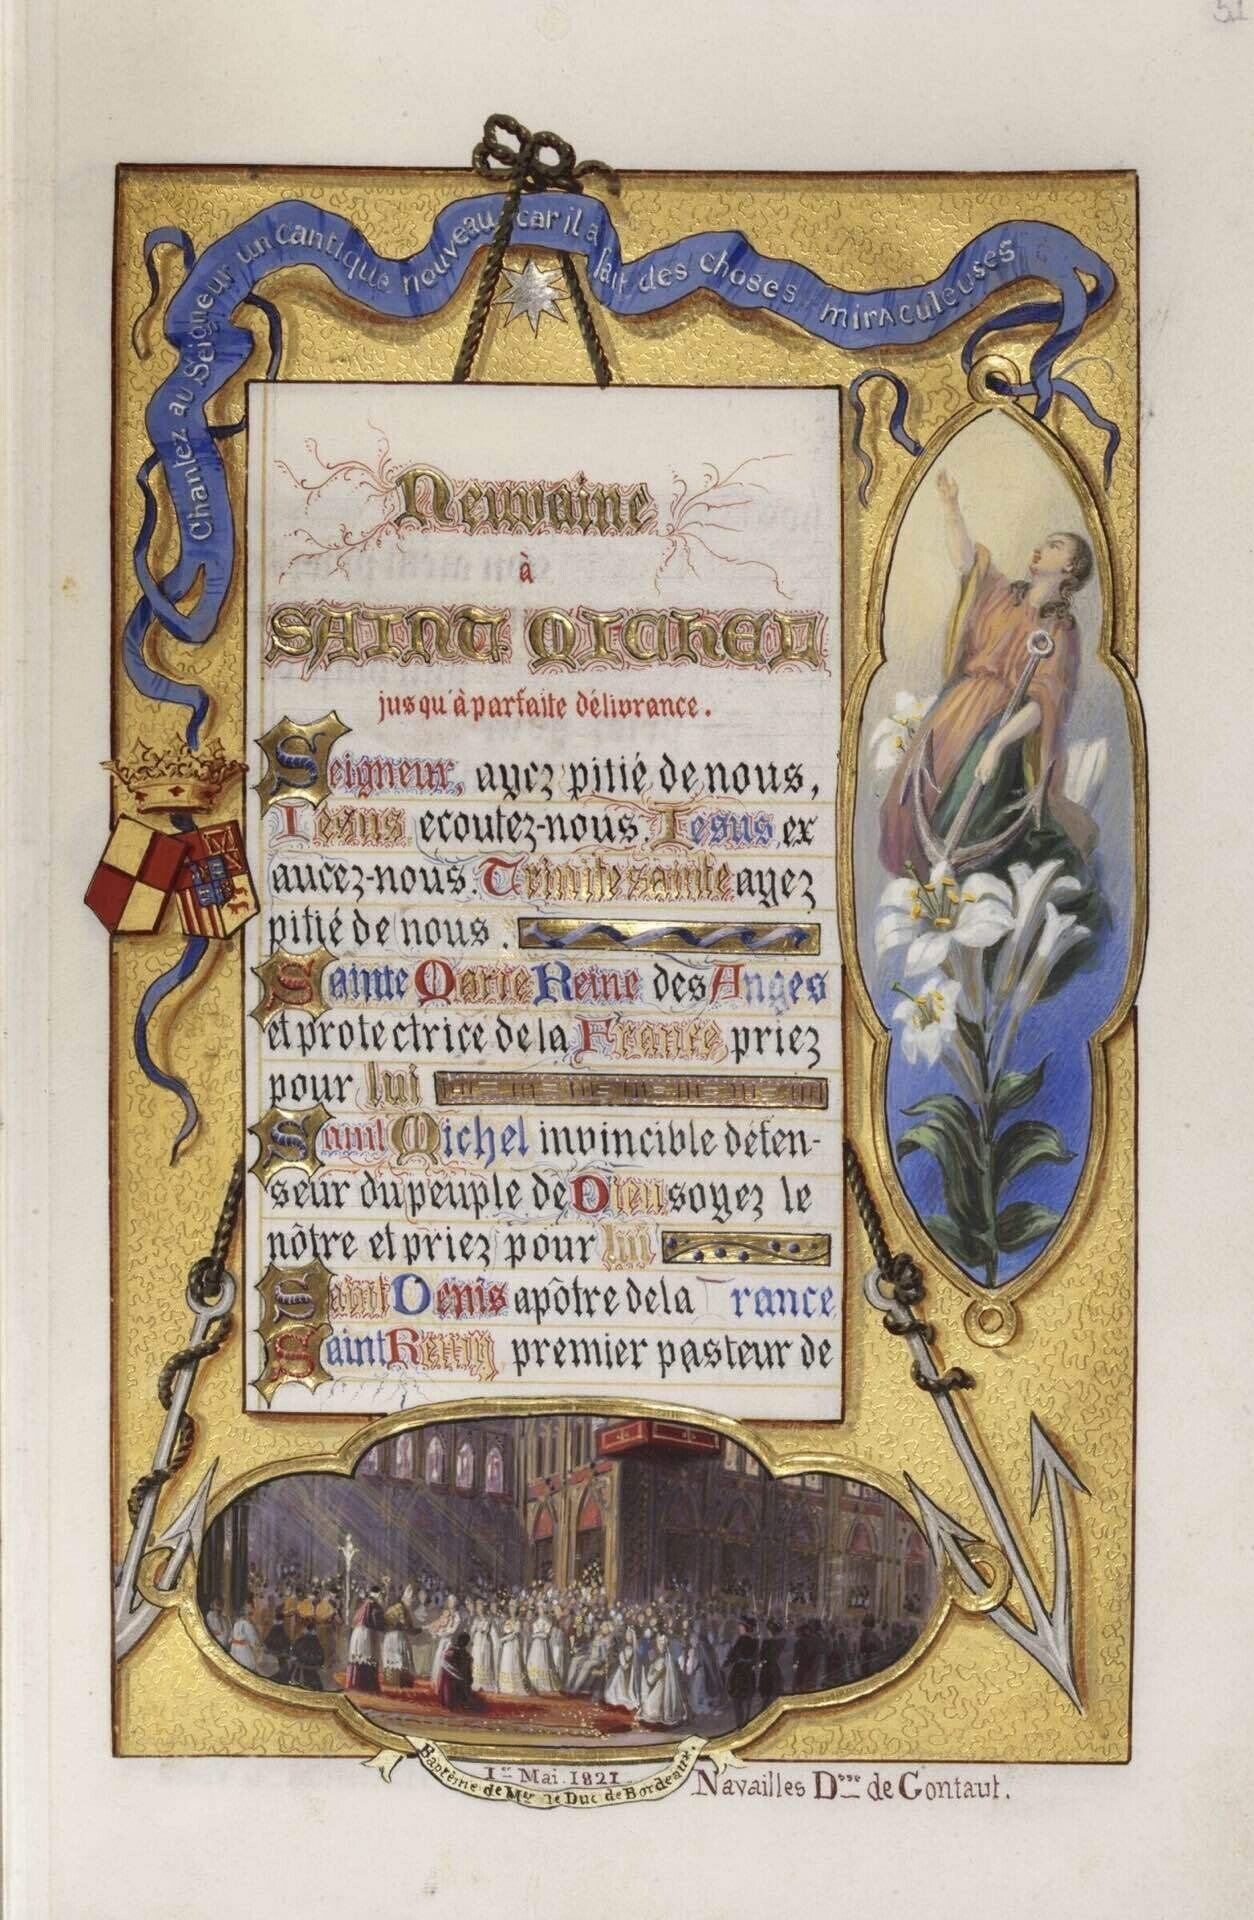 51
Chantez au Seigneur un cantique nouveau car il a fait des choses miraculeuses
Neuvaine
à
SAINT MICHEL
jusqu'à parfaite délivrance.
Seigneur, ayez pitié de nous,
Iesus ecoutez-nous. Iesus, ex
aucez-nous. Trinite sainte ayez
pitié de nous.
Sainte Marie Reine des Anges
et protectrice de la France priez
pour lui
Saint Michel invincible défen-
seur du peuple de Dieu soyez le
nôtre et priez pour lui
Saint Denis apôtre de la France
Saint Remy premier pasteur de
1er Mai 1821
Baptème de Mgr le Duc de Bordeaux.
Navailles Dsse de Gontaut.